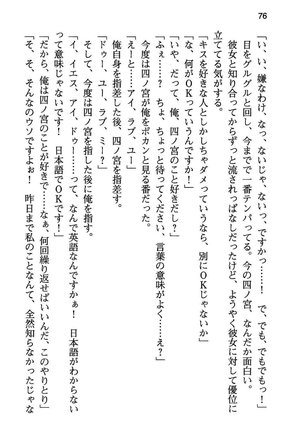 76
「い、い、嫌なわけ、なっ、ないじゃ、ないっ、ですかっ……！　で、でも、でもでもっ！」
目をグルグルと回し、今までで一番テンパってる。今の四ノ宮、なんだか面白い。
彼女と知り合ってからずっと流されっぱなしだったけど、ようやく彼女に対して優位に
立ててる気がする。
「キスを好きな人としかしちゃダメっていうなら、別にＯＫじゃないか」
「な、何がＯＫっていうんですか！」
「いや、だって、俺、四ノ宮のこと好きだし？」
「……ふぇっ？　ちょ、ちょっと待ってください、言葉の意味がよく……え？」
今度は四ノ宮が俺をポカンと見る番だった。
「えーと……アイ、ラブ、ユー」
俺自身を指差した後、四ノ宮を指差す。
「ユー、ラブ、ミー？」
そして、今度は四ノ宮を指差した後に俺を指す。
「イ、イエス、アイ、ドゥー……って、なんで英語なんですかぁ！　日本語がわからない
って意味じゃないです！　日本語でＯＫです！」
「だから、俺は四ノ宮のことが好きで……なぁ、何回繰り返せばいいんだ、このやりとり」
「そ、そ、そんなのウソですよぉ！　昨日まで私のことなんて、全然知らなかったじゃな